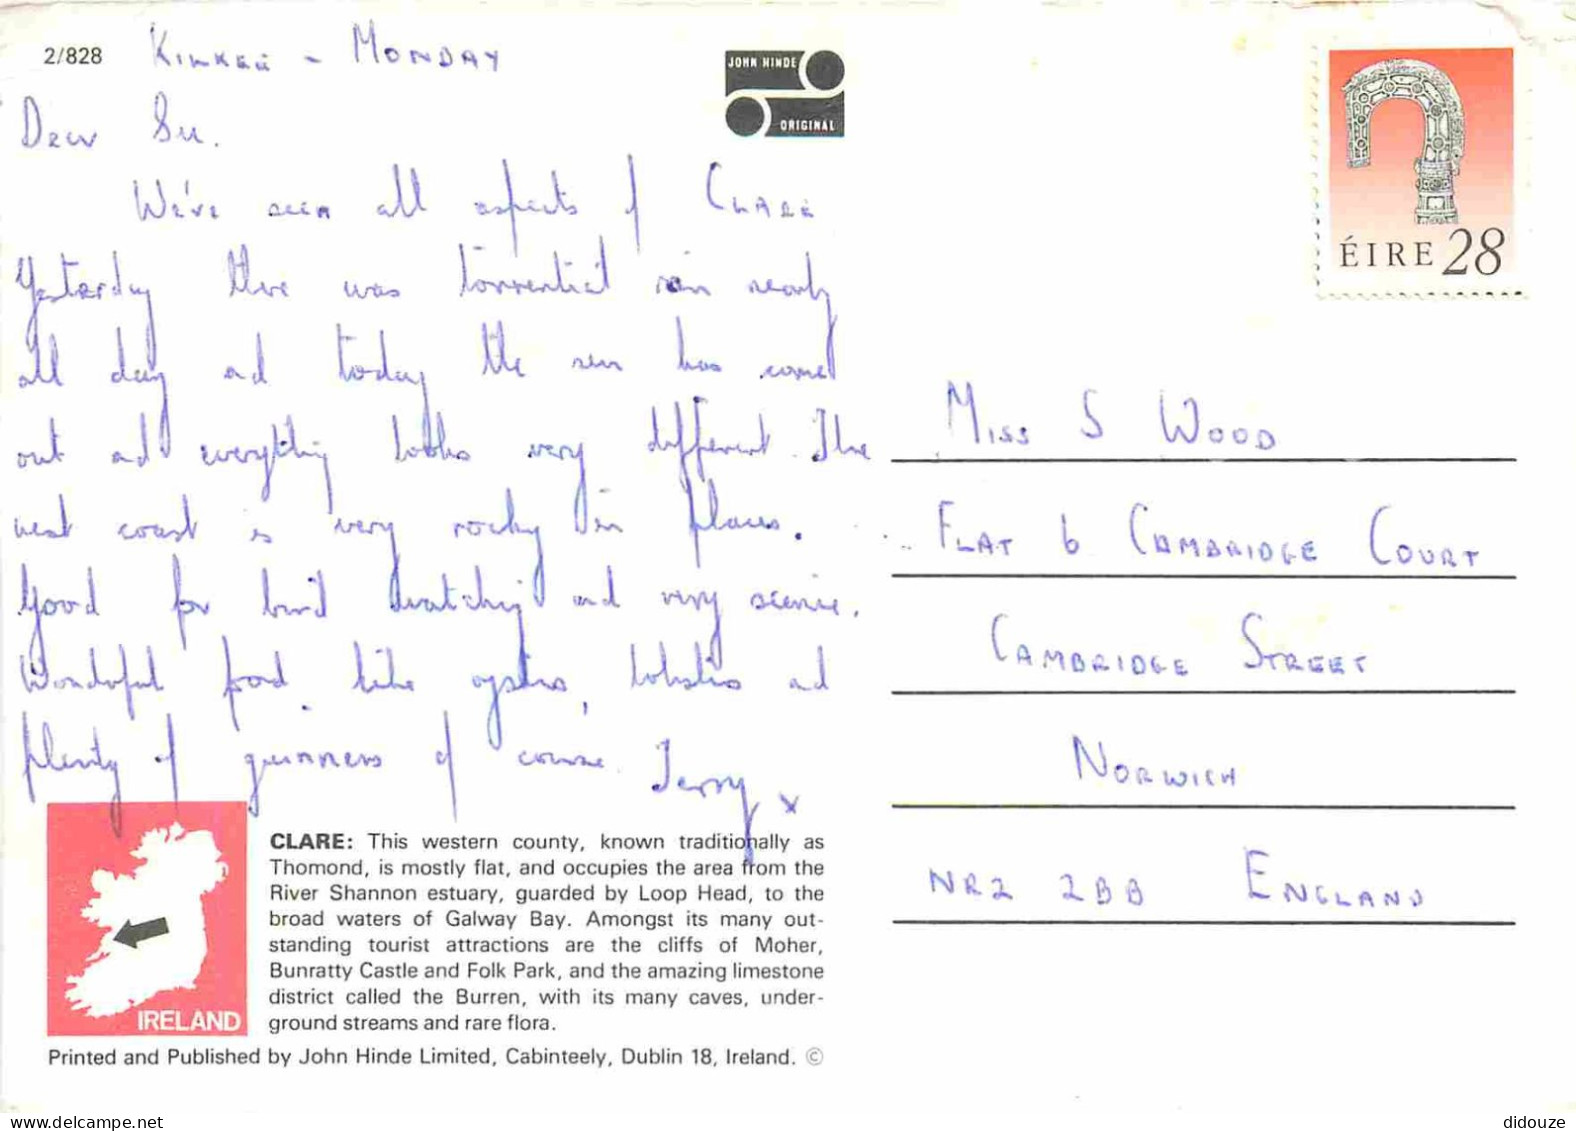 2/828
KILKEE - MONDAY
JOHN HINDE
ORIGINAL
Dear Su.
We've seen all aspects of CLARE
Yesterday there was torrential rain nearly
all day and today the sun has come
out and everything looks very different. The
west coast is very rocky in places.
Good for bird watching and very scenic.
Wonderful food, like oysters, lobsters and
plenty of guinness of course. Terry x
ÉIRE 28
MISS S WOOD
FLAT 6 CAMBRIDGE COURT
CAMBRIDGE STREET
NORWICH
NR2 2BB ENGLAND
IRELAND
CLARE: This western county, known traditionally as
Thomond, is mostly flat, and occupies the area from the
River Shannon estuary, guarded by Loop Head, to the
broad waters of Galway Bay. Amongst its many out-
standing tourist attractions are the cliffs of Moher,
Bunratty Castle and Folk Park, and the amazing limestone
district called the Burren, with its many caves, under-
ground streams and rare flora.
Printed and Published by John Hinde Limited, Cabinteely, Dublin 18, Ireland. ©
didouze